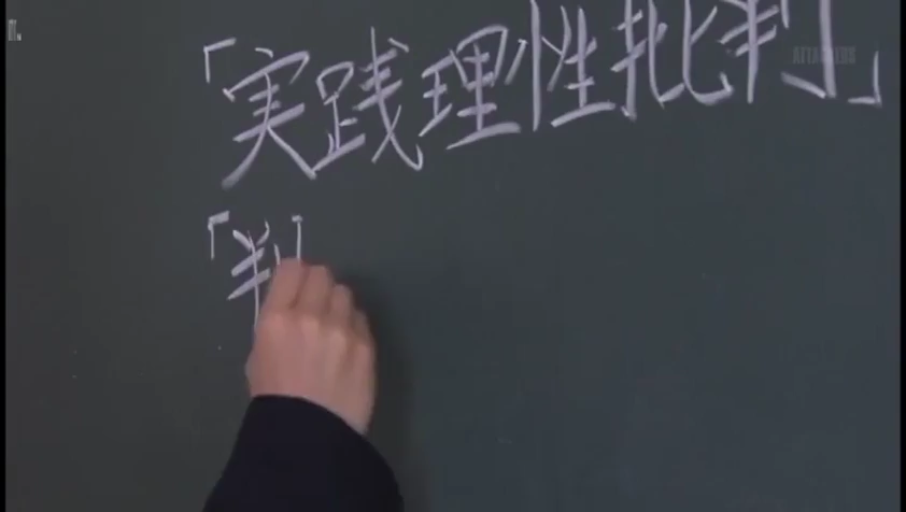 「実践理性批判」
「判